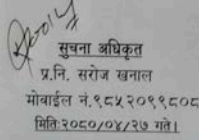 सुचना अधिकृत
प्र.नि. सरोज खनाल
मोबाईल नं.९८५२०९९८०८
मितिः२०८०/०४/२७ गते।